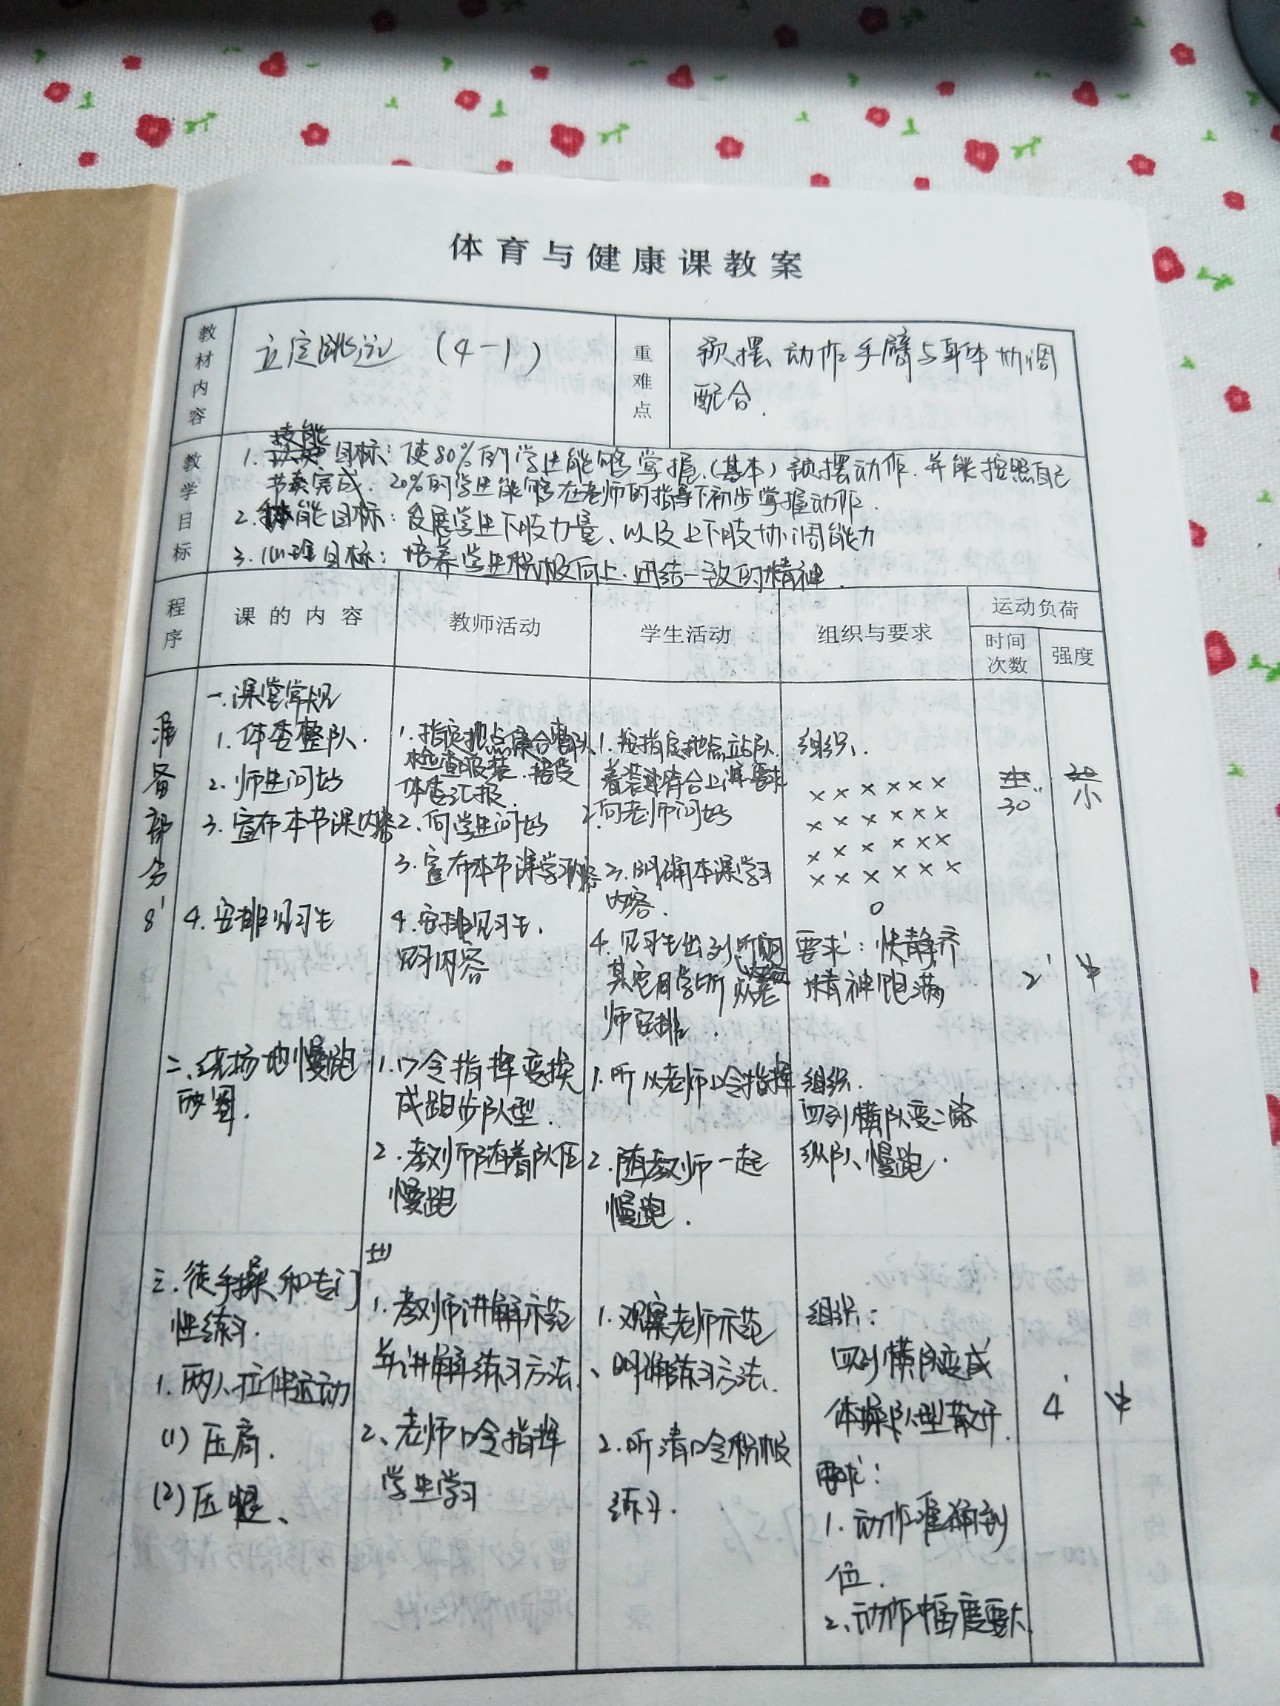 体育与健康课教案
教材内容
立定跳远 (4-1)
重难点
预摆动作手臂与身体协调
配合.
教学目标
技能
1. 目标：使80%的学生能够掌握(基本)预摆动作.并能按照自己
节奏完成. 20%的学生能够在老师的指导下初步掌握动作.
2. 体能目标：发展学生下肢力量、以及上下肢协调能力
3. 心理目标：培养学生积极向上.团结一致的精神.
程序
课的内容
教师活动
学生活动
组织与要求
运动负荷
时间
次数
强度
准备部分
8'
一.课堂常规
1. 体委整队.
2. 师生问好
3. 宣布本节课内容
4. 安排见习生
1. 指定地点集合整队
检查服装.接受
体委汇报.
2. 向学生问好
3. 宣布本节课学习内容
4. 安排见习生.
见习内容
1. 按指定地点站队
着装符合上课要求
2. 向老师问好
3. 明确本课学习
内容.
4. 见习生出列
其它同学听从老
师安排.
组织.
××××××
××××××
××××××
××××××
0
要求：快静齐
精神饱满
30''
小
二.绕场地慢跑
两圈.
1. 口令指挥变换
成跑步队型.
2. 教师随着队伍
慢跑
1. 听从老师口令指挥
2. 随教师一起
慢跑.
组织.
四列横队变二路
纵队、慢跑.
2'
中
三.徒手操和专门
性练习.
1. 两人拉伸运动
(1) 压肩.
(2) 压腿、
1. 教师讲解示范
并讲解练习方法.
2、老师口令指挥
学生学习
1. 观察老师示范
、明确练习方法.
2. 听清口令积极
练习.
组织：
四列横队变成
体操队型散开.
要求：
1. 动作准确到
位.
2、动作幅度要大
4'
中